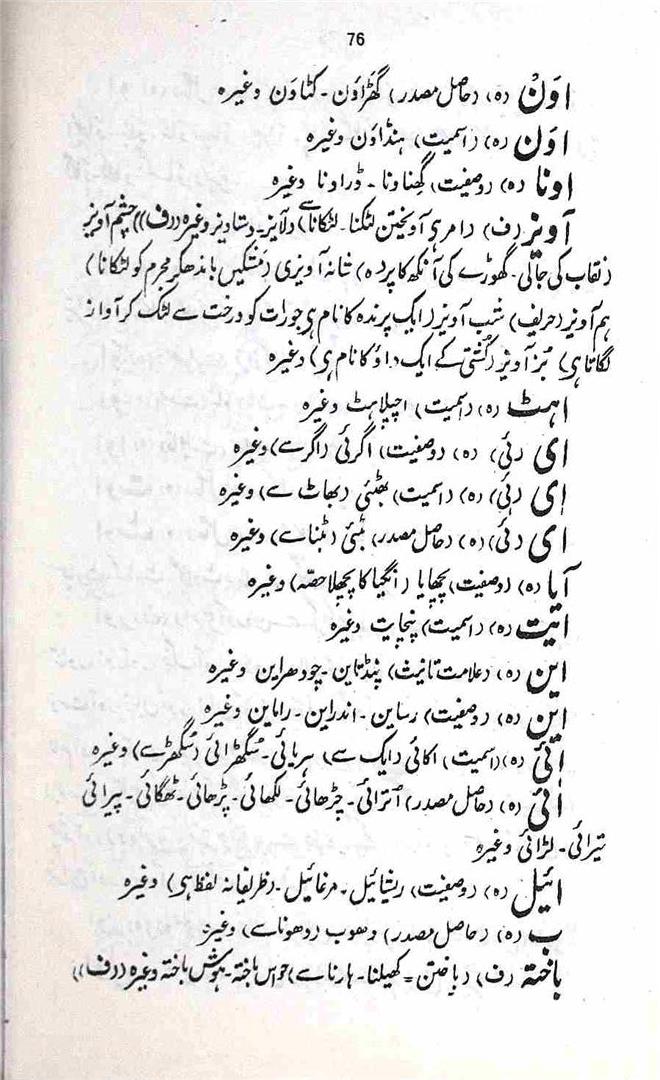 76
اوَن (ہ) (حاصل مصدر) گھڑاوَن - کٹاوَن وغیرہ
اوَن (ہ) (اسمیت) ہنڈاوَن وغیرہ
اونا (ہ) (وصفیت) گھناونا - ڈراونا وغیرہ
آویز (ف) (امر ہی آویختن لٹکنا - لٹکانا سے) دلآویز - دستاویز وغیرہ ((ف)) چشم آویز
(نقاب کی جالی - گھوڑے کی آنکھ کا پردہ) شانہ آویزی (مشکیں باندھکر مجرم کو لٹکانا)
ہم آویز (حریف) شب آویز (ایک پرندہ کا نام ہی جو رات کو درخت سے لٹک کر آواز
لگاتا ہی) بُز آویز (کُشتی کے ایک داؤ کا نام ہی) وغیرہ
اہٹ (ہ) (اسمیت) اچپلاہٹ وغیرہ
اَی (ئی) (ہ) (وصفیت) اگرئی (اگر سے) وغیرہ
اَی (ئی) (ہ) (اسمیت) بھٹئی (بھاٹ سے) وغیرہ
اَی (ئی) (ہ) (حاصل مصدر) بٹئی (بٹنا سے) وغیرہ
آیا (ہ) (وصفیت) پچھایا (انگیا کا پچھلا حصّہ) وغیرہ
ایت (ہ) (اسمیت) پنچایت وغیرہ
این (ہ) (علامت تانیث) پنڈتاین - چودھراین وغیرہ
این (ہ) (وصفیت) رساین - اندراین - راماین وغیرہ
ائی (ہ) (اسمیت) اکائی (ایک سے) ہریائی - سُگھڑائی (سُگھڑ سے) وغیرہ
ائی (ہ) (حاصل مصدر) اُترائی - چڑھائی - لکھائی - پڑھائی - ٹھگائی - پیرائی
تیرائی - لڑائی وغیرہ
ائیل (ہ) (وصفیت) ریشائیل - مرغائیل - (ظریفانہ لفظ ہی) وغیرہ
ب (ہ) (حاصل مصدر) دھوب (دھونا سے) وغیرہ
باختہ (ف) (باختن = کھیلنا - ہارنا سے) حواس باختہ - ہوش باختہ وغیرہ ((ف))